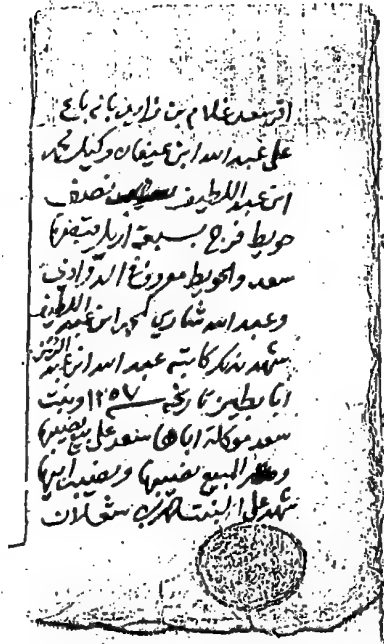 اقر سعد غلام بن زايد بانه باع
على عبد الله ابن عيفان وكيل محمد
ابن عبد اللطيف نصف
حويط فرج بسبعة اريل قبضها
سعد والحويط معروف
وعبد الله شاري لمحمد ابن عبد اللطيف
شهد بذلك كاتبه عبد الله ابن عبد الرحمن
ابا بطين تاريخه ١٢٥٧ وبنت
سعد موكلة اباها سعد على بيع نصيبها
المبيع نصيبها ونصيب ابيها
شهد على البنت